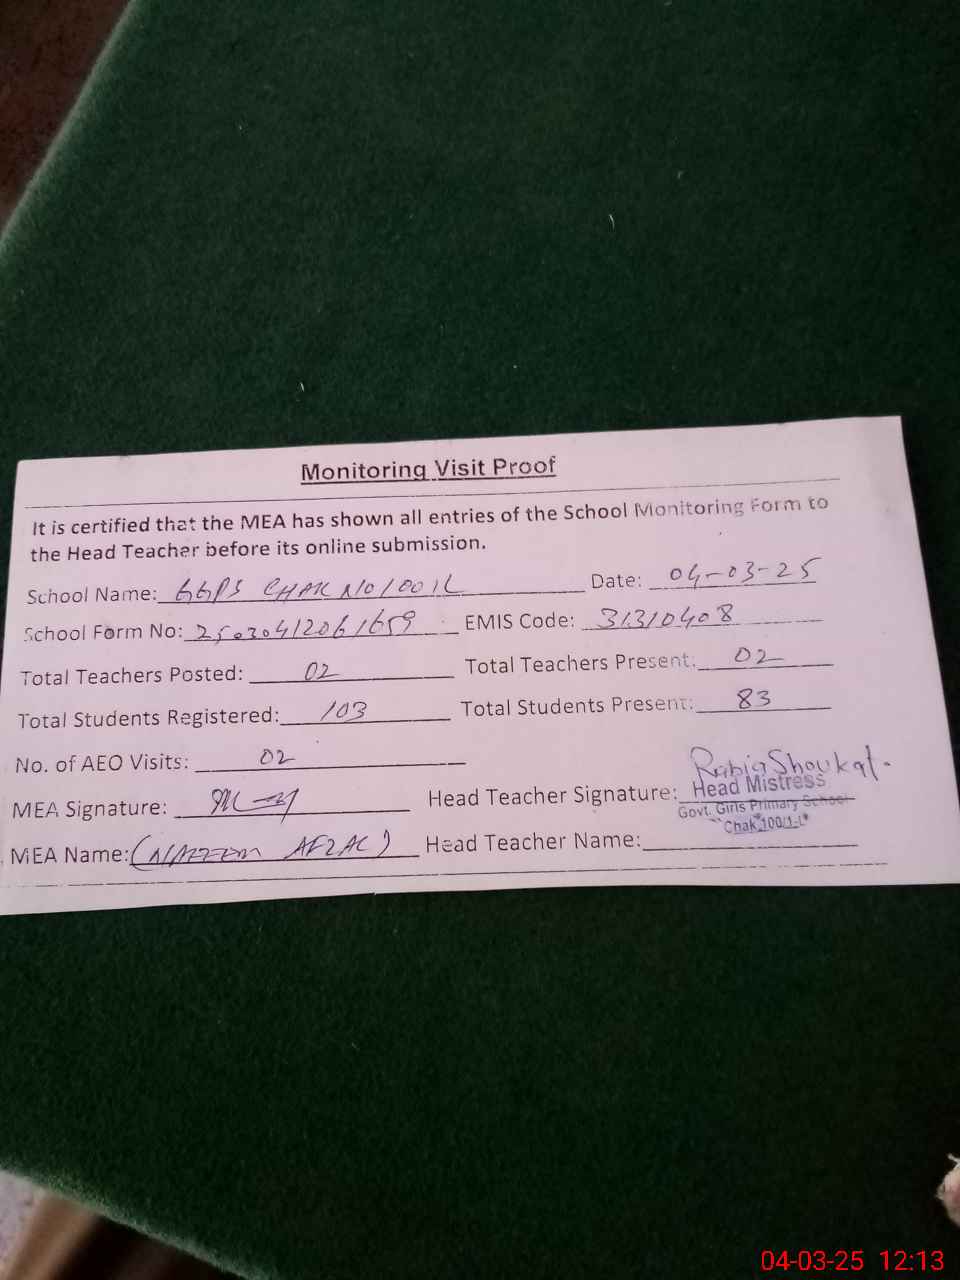 Monitoring Visit Proof
It is certified that the MEA has shown all entries of the School Monitoring Form to
the Head Teacher before its online submission.
School Name: GGPS CHAK NO 100 1L Date: 04-03-25
School Form No: 25030412061659 EMIS Code: 31310408
Total Teachers Posted: 02 Total Teachers Present: 02
Total Students Registered: 103 Total Students Present: 83
No. of AEO Visits: 02
MEA Signature: Head Teacher Signature: Rabia Shoukat.
Head Mistress
Govt. Girls Primary School
Chak 100/1-L
MEA Name: (NAEEM AFZAL) Head Teacher Name:
04-03-25 12:13